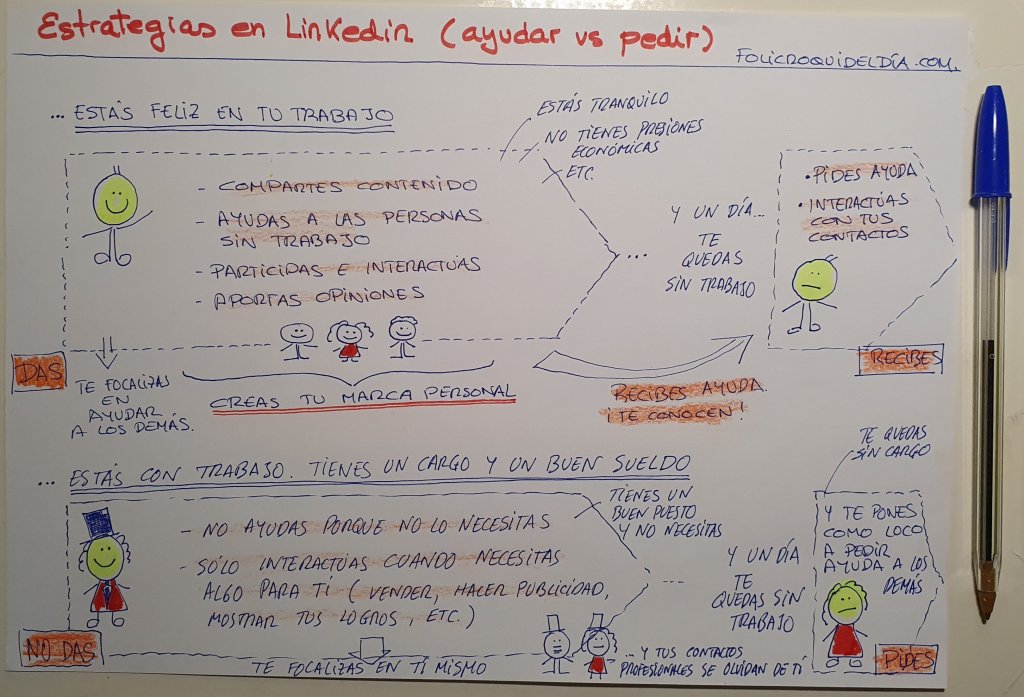 Estrategias en Linkedin (ayudar vs pedir)
FOLICROQUIDELDÍA.COM.
... ESTÁS FELIZ EN TU TRABAJO
ESTÁS TRANQUILO
NO TIENES PRESIONES
ECONÓMICAS
ETC.
- COMPARTES CONTENIDO
- AYUDAS A LAS PERSONAS
SIN TRABAJO
- PARTICIPAS E INTERACTÚAS
- APORTAS OPINIONES
... Y UN DÍA...
TE
QUEDAS
SIN TRABAJO
• PIDES AYUDA
• INTERACTÚAS
CON TUS
CONTACTOS
DAS
TE FOCALIZAS
EN
AYUDAR
A LOS DEMÁS.
CREAS TU MARCA PERSONAL
RECIBES AYUDA
¡TE CONOCEN!
RECIBES
... ESTÁS CON TRABAJO. TIENES UN CARGO Y UN BUEN SUELDO
TIENES UN
BUEN PUESTO
Y NO NECESITAS
- NO AYUDAS PORQUE NO LO NECESITAS
- SÓLO INTERACTÚAS CUANDO NECESITAS
ALGO PARA TÍ (VENDER, HACER PUBLICIDAD,
MOSTRAR TUS LOGROS, ETC.)
NO DAS
TE FOCALIZAS EN TÍ MISMO
... Y TUS CONTACTOS
PROFESIONALES SE OLVIDAN DE TÍ
... Y UN DÍA
TE
QUEDAS SIN
TRABAJO
TE QUEDAS
SIN CARGO
Y TE PONES
COMO LOCO
A PEDIR
AYUDA A LOS
DEMÁS
PIDES